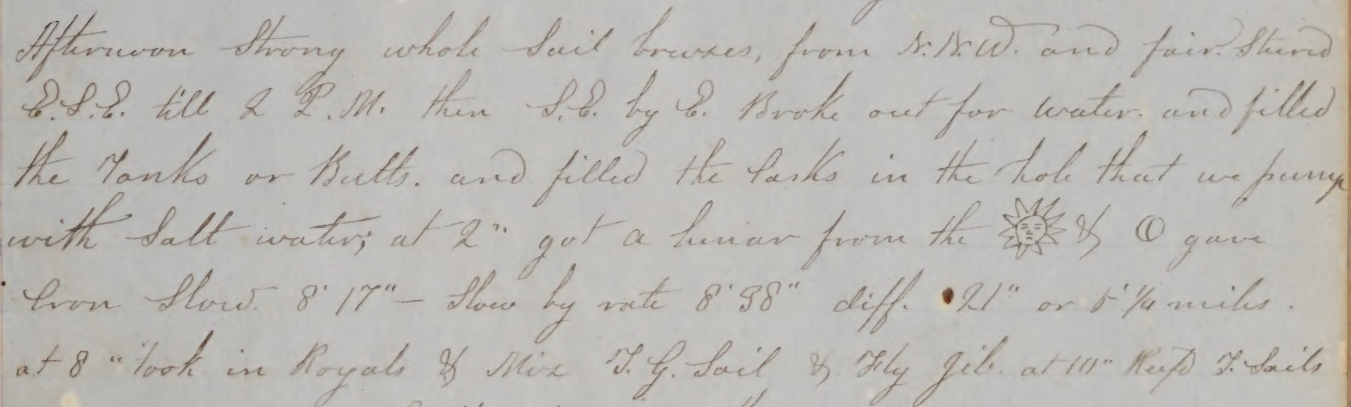 Afternoon Strong whole Sail breezes, from N.N.W. and fair. Stered
E.S.E. till 2 P.M. then S.E. by E. Broke out for water. and filled
the Tanks or Butts. and filled the Casks in the hole that we pump
with Salt water; at 2" got a lunar from the ☀ & O gave
Cron Slow. 8' 17" – Slow by rate 8' 38" diff. 21" or 5' 1/4 miles.
at 8 " took in Royals & Miz T. G. Sail & Fly Jib. at 10" Reefd T. Sails